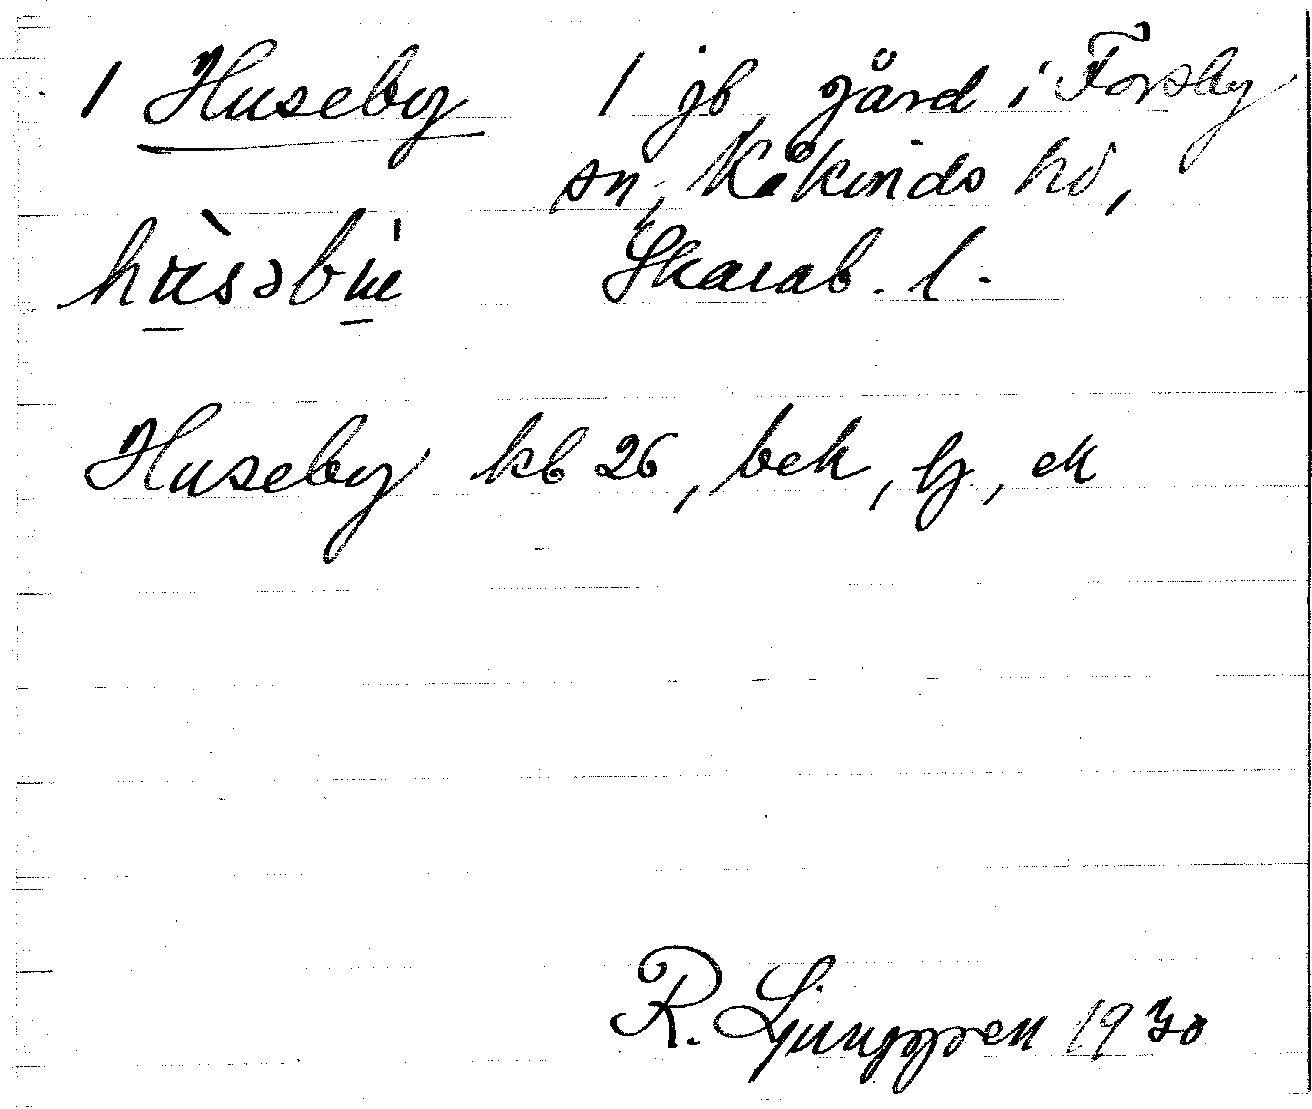 1 Huseby 1 jb gård i Forsby
sn, Kåkinds hd,
Skarab. l.
Huseby kb 26, bek, lj, ek
R. Ljunggren 1930